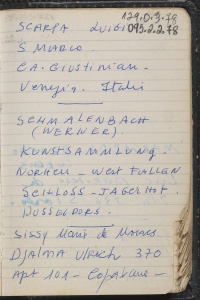 129.0.3.79
SCARPA LUIGI 095.2.2.78
S MARCO.
CA. GIUSTINIAN.
Venezia. Italie
SCHMALENBACH
(WERNER).
KUNSTSAMMLUNG.
NORHEIN - West FALLEN
SCHLOSS - JAGERHOF.
DUSSELDORF.
Sissy
Djalma Ulrich 370
Apt 101 - Copacabana -